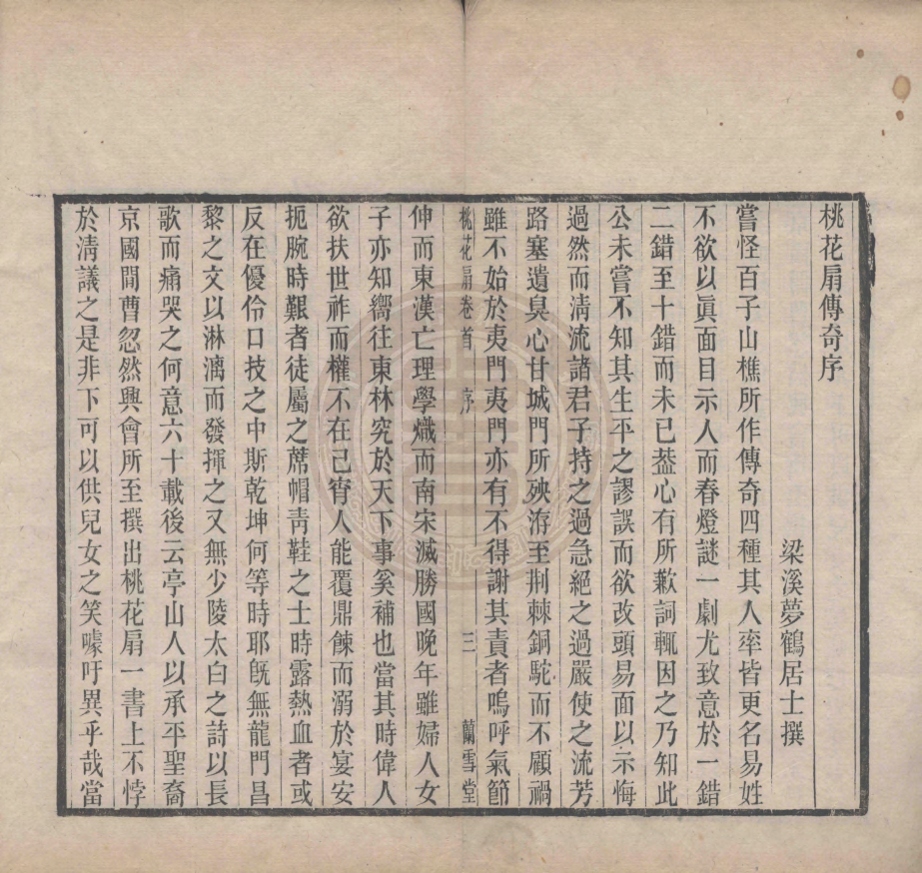 桃花扇傳奇序
梁溪夢鶴居士撰
嘗怪百子山樵所作傳奇四種其人率皆更名易姓
不欲以眞面目示人而春燈謎一劇尤致意於一錯
二錯至十錯而未已葢心有所歉詞輒因之乃知此
公未嘗不知其生平之謬誤而欲改頭易面以示悔
過然而淸流諸君子持之過急絕之過嚴使之流芳
路塞遺臭心甘城門所殃洊至荆棘銅駝而不顧禍
雖不始於夷門夷門亦有不得謝其責者嗚呼氣節
桃花扇卷首 序 三 蘭雪堂
伸而東漢亡理學熾而南宋滅勝國晚年雖婦人女
子亦知嚮往東林究於天下事奚補也當其時偉人
欲扶世祚而權不在己宵人能覆鼎餗而溺於宴安
扼腕時艱者徒屬之蓆帽靑鞋之士時露熱血者或
反在優伶口技之中斯乾坤何等時耶旣無龍門昌
黎之文以淋漓而發揮之又無少陵太白之詩以長
歌而痛哭之何意六十載後云亭山人以承平聖裔
京國閒曹忽然興會所至撰出桃花扇一書上不悖
於淸議之是非下可以供兒女之笑噱吁異乎哉當